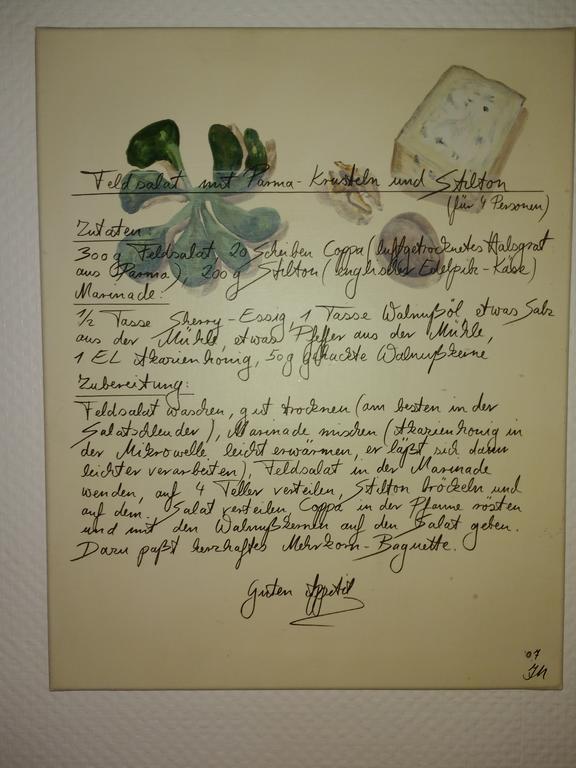 Feldsalat mit Parma-Krusteln und Stilton
(für 4 Personen)
Zutaten:
300g Feldsalat 20 Scheiben Coppa (luftgetrocknetes Halsgrat
aus Parma), 200g Stilton (englischer Edelpilz-Käse)
Marinade:
1/2 Tasse Sherry-Essig, 1 Tasse Walnußöl, etwas Salz
aus der Mühle, etwas Pfeffer aus der Mühle,
1 EL Akazienhonig, 50g gehackte Walnußkerne
Zubereitung:
Feldsalat waschen, gut trocknen (am besten in der
Salatschleuder), Marinade mischen (Akazienhonig in
der Mikrowelle leicht erwärmen, er läßt sich dann
leichter verarbeiten), Feldsalat in der Marinade
wenden, auf 4 Teller verteilen, Stilton bröckeln und
auf dem Salat verteilen, Coppa in der Pfanne rösten
und mit den Walnußkernen auf den Salat geben.
Dazu paßt herzhaftes Mehrkorn-Baguette.
Guten Appetit
'07